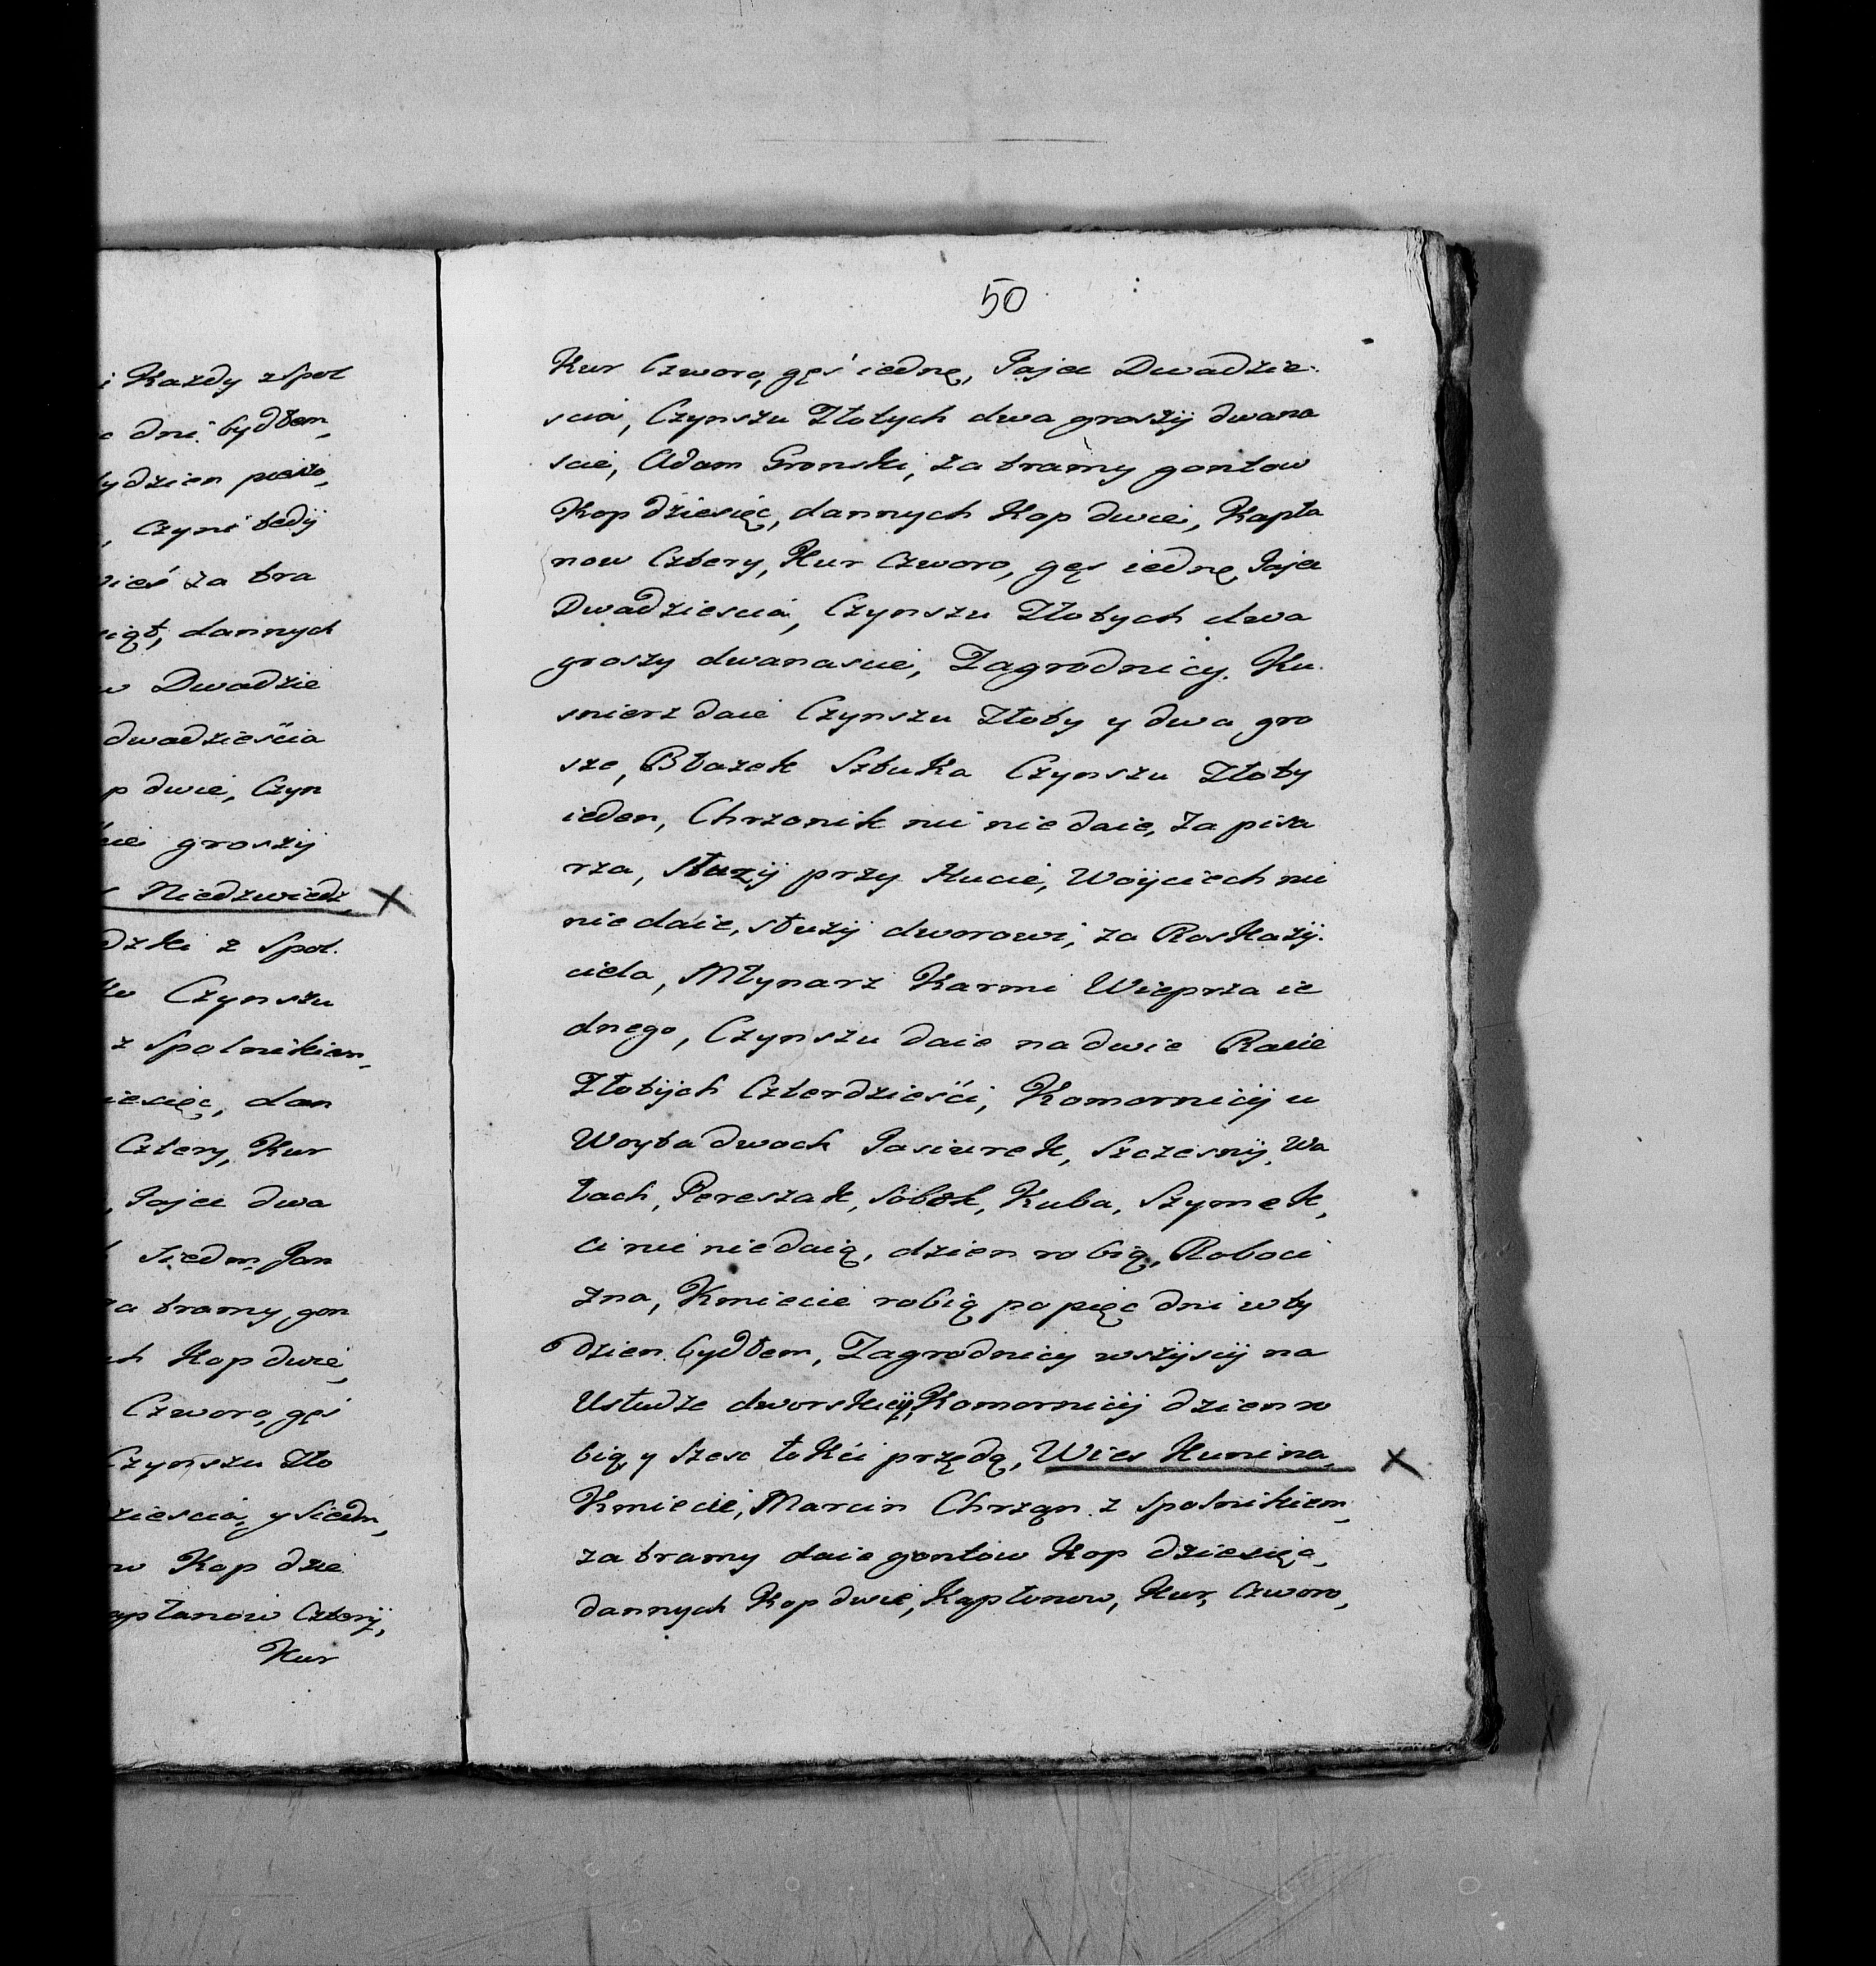 Kazdy z Spol
dni bydłem
ydzien pieszo
, czyni tedy
wieś za tra
dannych
Dwadzie
dwadzieścia
p dwie, Czyn
groszÿ
Niedzwiedz
dzki z Spol.
Czynszu
z Spolnikiem
iesięc, dan
Cztery, Kur
, Jajec dwa
Siedm, Jan
za tramy gon
ch Kop dwie,
Czworo, gęś
Czynszu Zło
dziescia, y Siedm,
w Kop dzie
apłanow Czterÿ,
Kur
50
Kur Czworo, gęś iednę, Jajec Dwadzie
scia, Czynszu Złotych dwa groszÿ dwana
scie, Adam Gronski, za tramy gontow
Kop dziesięc, dannych Kop dwie, Kapła
now Cztery, Kur Czworo, gęs iednę, Jajec
Dwadziescia, Czynszu Złotych dwa
groszy dwanascie, Zagrodnicy. Ku
snierz daie Czynszu Złoty y dwa gro
sze, Błazek Sztuka Czynszu Złoty
ieden, Chrzonik nic nie daie, za pisa
rza, służÿ przy Hucie, Woyciech nic
nie daie, służÿ dworowi, za Roskazÿ
ciela, Młynarz Karmi Wieprza ie
dnego, Czynszu daie na dwie Racie
Złotÿch Czterdzieści, Komornicÿ u
Woyta dwoch Jasiurek, Szczesnÿ, Wa
łach, Pereszak, Sobek, Kuba, Szymek,
ci nic niedaią, dzien robią, Roboci
zna, Kmiecie robią po pięc dni w ty
dzien bydłem, Zagrodnicy wszÿscÿ na
Usłudze dworskieÿ, Komornicÿ dzien ro
bią y szesc łokci przędą, Wies Hunina,
Kmiecie, Marcin Chrząn z Spolnikiem,
za tramy daie gontow Kop dziesięc,
dannych Kop dwie, Kapłonow, Kur, Czworo,